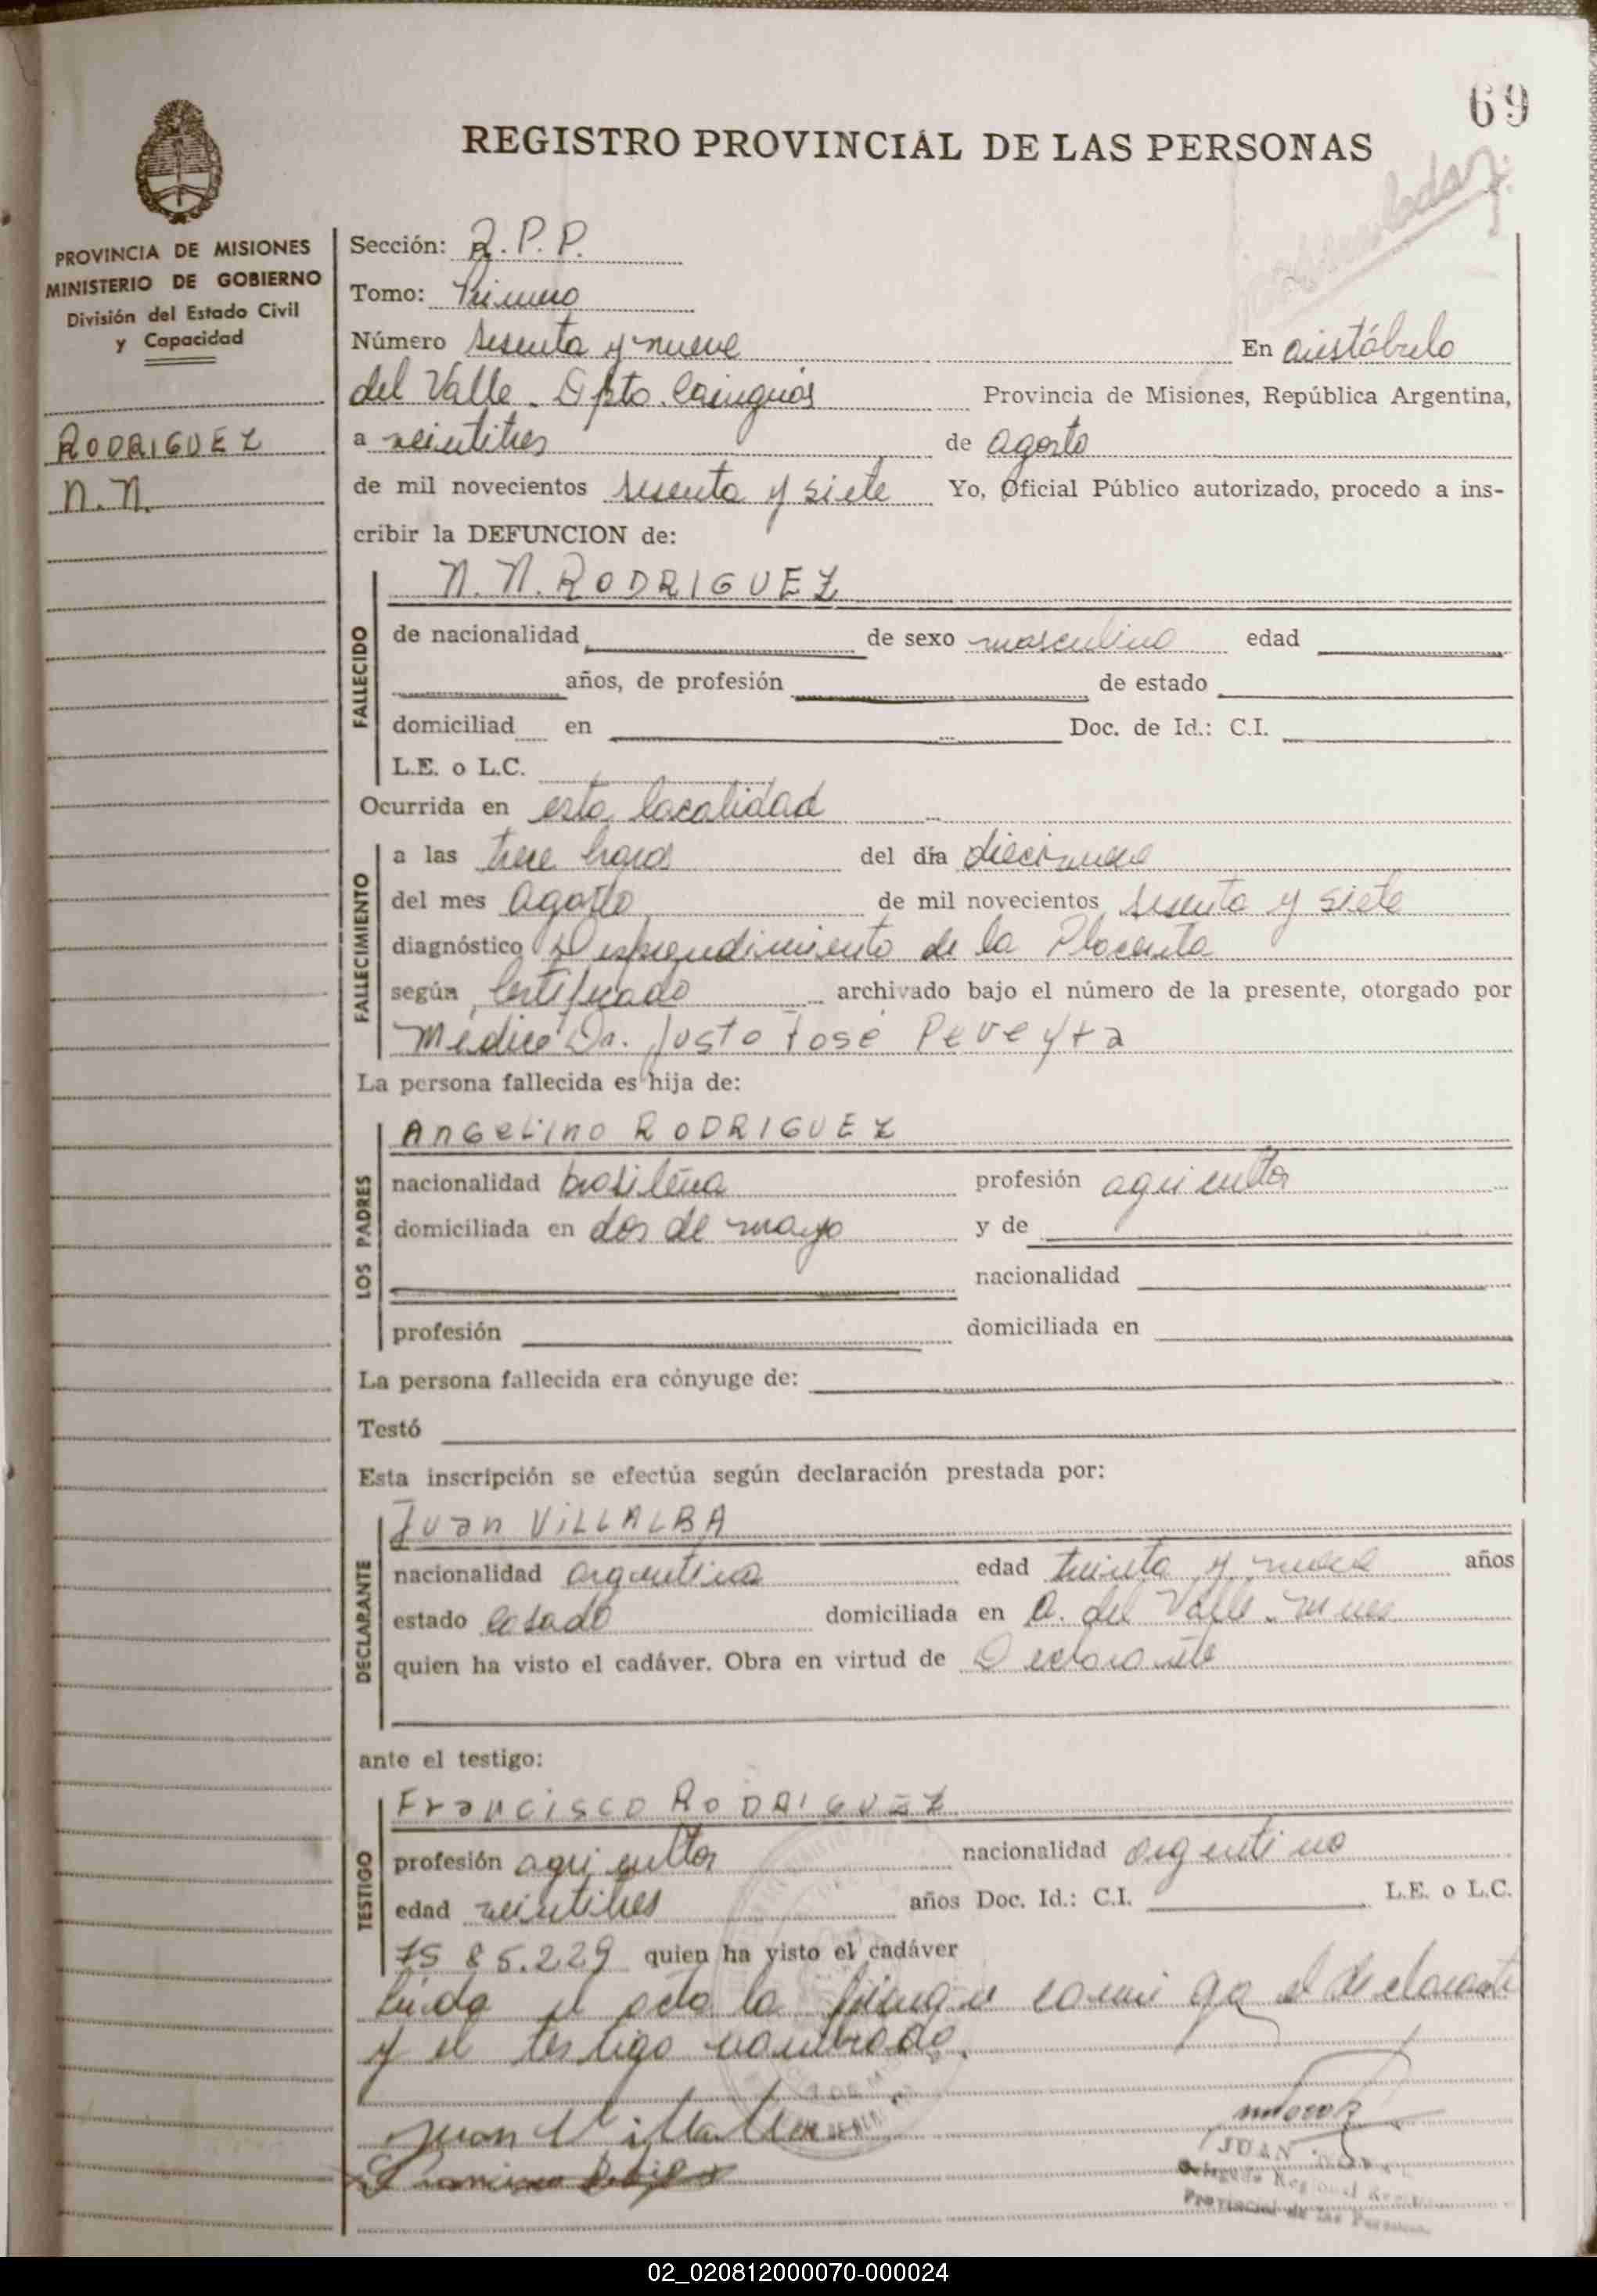 69
REGISTRO PROVINCIAL DE LAS PERSONAS
PROVINCIA DE MISIONES
MINISTERIO DE GOBIERNO
División del Estado Civil
y Capacidad
RODRIGUEZ
N.N.
Sección: R.P.P.
Tomo: Primero
Número sesenta y nueve En Aristóbulo
del Valle. Dpto. Cainguás Provincia de Misiones, República Argentina,
a veintitres de agosto
de mil novecientos sesenta y siete Yo, Oficial Público autorizado, procedo a ins-
cribir la DEFUNCION de:
FALLECIDO
N.N. RODRIGUEZ
de nacionalidad de sexo masculino edad
años, de profesión de estado
domiciliad en Doc. de Id.: C.I.
L.E. o L.C.
Ocurrida en esta localidad
FALLECIMIENTO
a las trece horas del día diecinueve
del mes Agosto de mil novecientos sesenta y siete
diagnóstico Desprendimiento de la Placenta
según Certificado archivado bajo el número de la presente, otorgado por
Médico Dr. Justo José Pereyra
La persona fallecida es hija de:
LOS PADRES
ANGELINO RODRIGUEZ
nacionalidad brasileña profesión agricultor
domiciliada en dos de mayo y de
nacionalidad
profesión domiciliada en
La persona fallecida era cónyuge de:
Testó
Esta inscripción se efectúa según declaración prestada por:
DECLARANTE
Juan VILLALBA
nacionalidad argentina edad treinta y nueve años
estado casado domiciliada en A. del Valle
quien ha visto el cadáver. Obra en virtud de Declarante
ante el testigo:
TESTIGO
Francisco RODRIGUEZ
profesión agricultor nacionalidad argentino
edad veintitres años Doc. Id.: C.I. L.E. o L.C.
7585.229 quien ha visto el cadáver
Leída el acta la firman conmigo el declarante
y el testigo nombrado.
Juan Villalba
JUAN
Delegado Regional
Provincial de las Personas
02_020812000070-000024